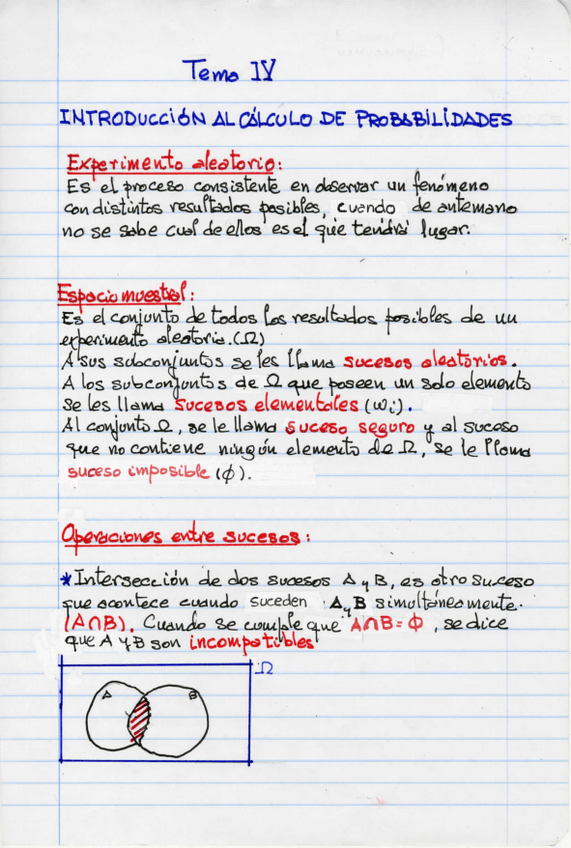 Tema IV
INTRODUCCIÓN AL CÁLCULO DE PROBABILIDADES
Experimento aleatorio:
Es el proceso consistente en observar un fenómeno
con distintos resultados posibles, cuando de antemano
no se sabe cual de ellos es el que tendrá lugar.
Espacio muestral:
Es el conjunto de todos los resultados posibles de un
experimento aleatorio. (Ω)
A sus subconjuntos se les llama sucesos aleatorios.
A los subconjuntos de Ω que poseen un solo elemento
se les llama sucesos elementales (ωi).
Al conjunto Ω, se le llama suceso seguro y al suceso
que no contiene ningún elemento de Ω, se le llama
suceso imposible (ϕ).
Operaciones entre sucesos:
*Intersección de dos sucesos A y B, es otro suceso
que acontece cuando suceden A y B simultáneamente.
(A∩B). Cuando se cumple que A∩B = ϕ, se dice
que A y B son incompatibles
Ω
A B